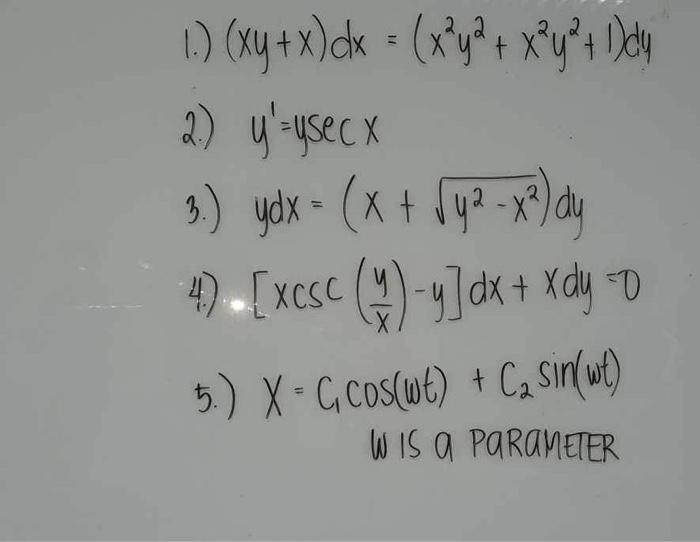 1.) (xy+x)dx = (x²y² + x²y² + 1)dy
2.) y' = y sec x
3.) ydx = (x + √(y² - x²))dy
4.) [x csc (y/x) - y]dx + xdy = 0
5.) X = C₁cos(wt) + C₂ sin(wt)
W IS a PARAMETER